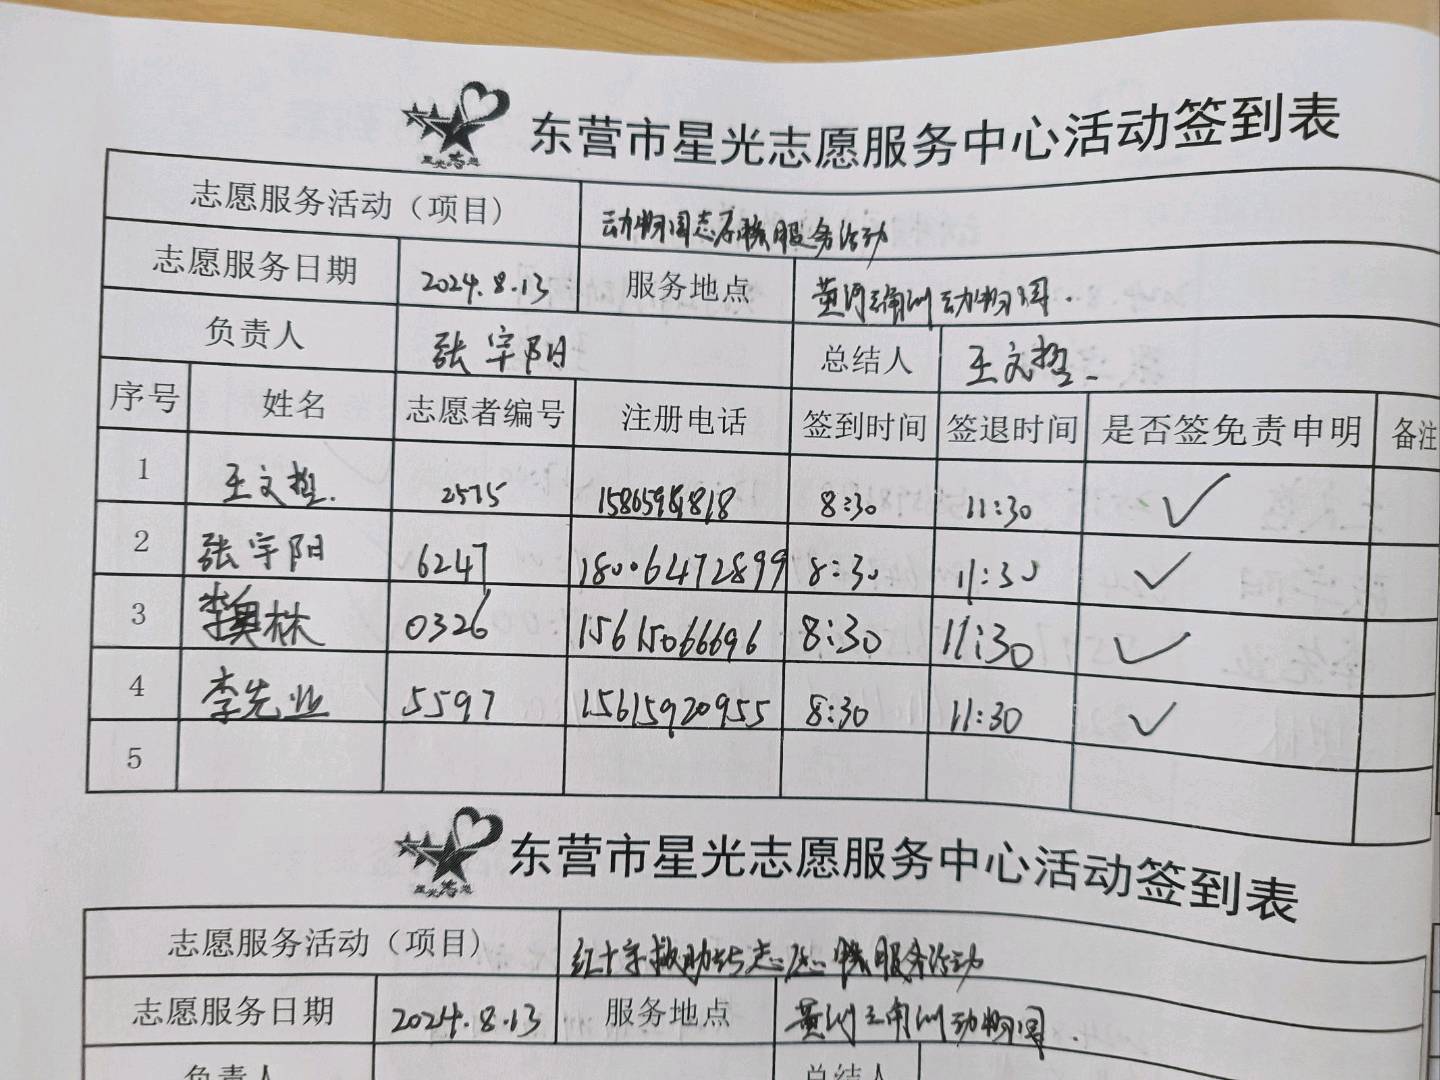 星光志愿
东营市星光志愿服务中心活动签到表
志愿服务活动（项目） 动物园志愿服务活动
志愿服务日期 2024.8.13 服务地点 黄河三角洲动物园.
负责人 张宇阳 总结人 王文哲.
序号 姓名 志愿者编号 注册电话 签到时间 签退时间 是否签免责申明 备注
1 王文哲. 2575 8:30 11:30 ✓
2 张宇阳 6247 18006472899 8:30 11:30 ✓
3 李奥林 0326 15615066696 8:30 11:30 ✓
4 李先业 5597 15615920955 8:30 11:30 ✓
5
星光志愿
东营市星光志愿服务中心活动签到表
志愿服务活动（项目） 红十字救助站志愿服务活动
志愿服务日期 2024.8.13 服务地点 黄河三角洲动物园.
负责人 总结人